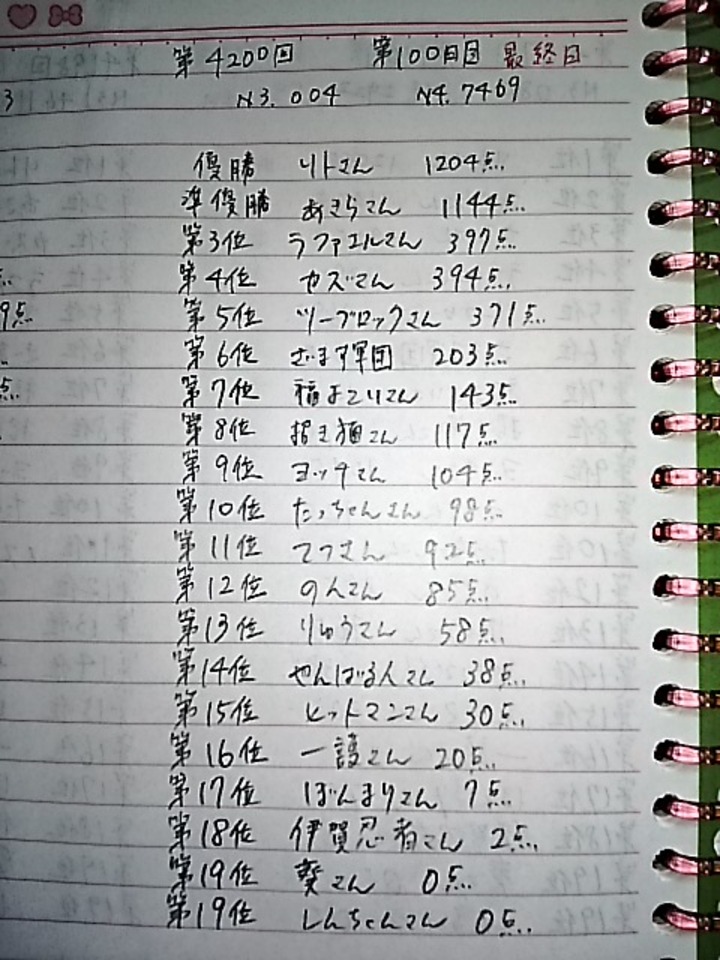 第4200回 第100日目 最終日
3 N3.004 N4.7469
優勝 リトさん 1204点
準優勝 あきらさん 1144点
第3位 ラファエルさん 397点
第4位 カズさん 394点
9点 第5位 ツーブロックさん 371点
第6位 ざます軍団 203点
点 第7位 福よこいさん 143点
第8位 招き猫さん 117点
第9位 ヨッチさん 104点
第10位 たっちゃんさん 98点
第11位 てつさん 92点
第12位 のんさん 85点
第13位 りゅうさん 58点
第14位 やんばる人さん 38点
第15位 ヒットマンさん 30点
第16位 一護さん 20点
第17位 ぽんまりさん 7点
第18位 伊賀忍者さん 2点
第19位 葵さん 0点
第19位 しんちゃんさん 0点